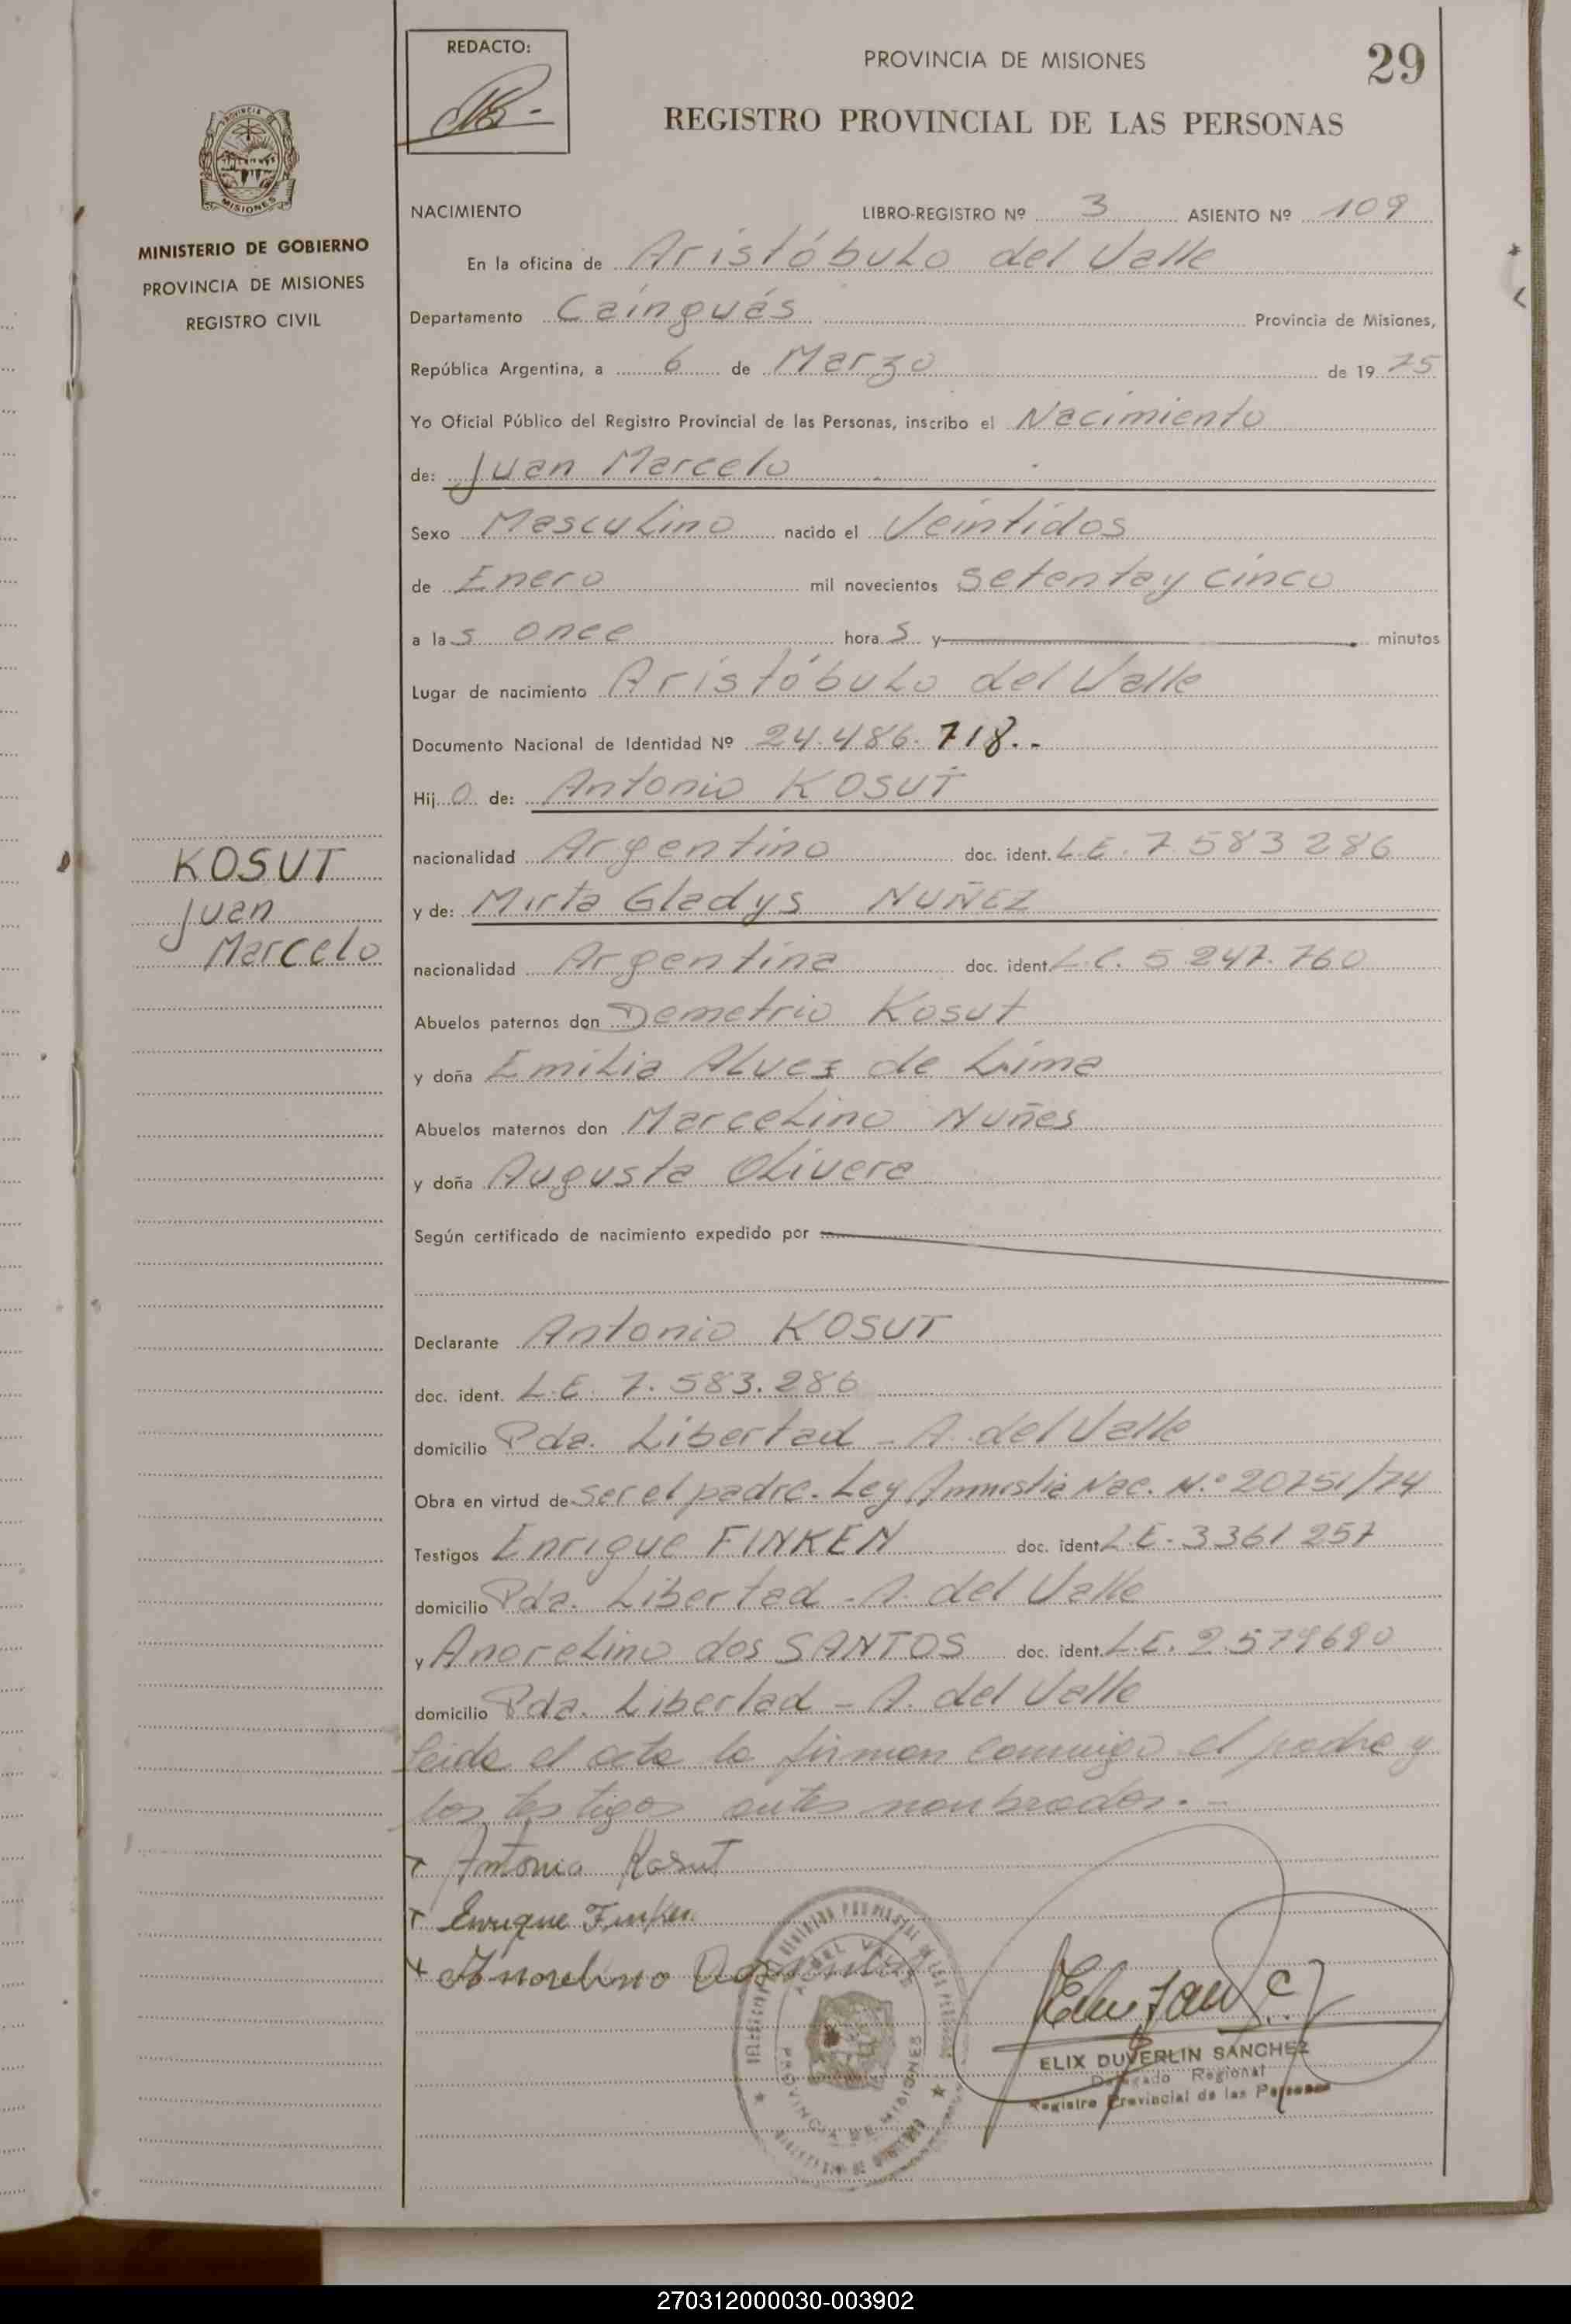 REDACTO:
PROVINCIA DE MISIONES
29
REGISTRO PROVINCIAL DE LAS PERSONAS
MISIONES
MINISTERIO DE GOBIERNO
PROVINCIA DE MISIONES
REGISTRO CIVIL
NACIMIENTO LIBRO-REGISTRO Nº 3 ASIENTO Nº 109
En la oficina de Aristóbulo del Valle
Departamento Cainguás Provincia de Misiones,
República Argentina, a 6 de Marzo de 1975
Yo Oficial Público del Registro Provincial de las Personas, inscribo el Nacimiento
de: Juan Marcelo
Sexo Masculino nacido el Veintidos
de Enero mil novecientos setenta y cinco
a las once horas y minutos
Lugar de nacimiento Aristóbulo del Valle
Documento Nacional de Identidad Nº 24.486.718.-
Hijo de: Antonio KOSUT
nacionalidad Argentino doc. ident. L.E. 7.583286
KOSUT
Juan
Marcelo
y de: Mirta Gladys NUÑEZ
nacionalidad Argentina doc. ident. L.C. 5.247.760
Abuelos paternos don Demetrio Kosut
y doña Emilia Alvez de Lima
Abuelos maternos don Marcelino Nuñes
y doña Augusta Olivera
Según certificado de nacimiento expedido por
Declarante Antonio KOSUT
doc. ident. L.E. 7.583.286
domicilio Pda. Libertad - A. del Valle
Obra en virtud de ser el padre. Ley Amnistia Nac. N.º 20751/74
Testigos Enrique FINKEN doc. ident. L.E. 3361257
domicilio Pda. Libertad - A. del Valle
y Anorelino dos SANTOS doc. ident. L.E. 2.579690
domicilio Pda. Libertad - A. del Valle
Leida el acta la firman conmigo el padre y
los testigos antes nombrados.-
Antonio Kosut
Enrique Finken
Anorelino
PROVINCIA DE MISIONES
ELIX DUVERLIN SANCHEZ
Delegado Regional
Registro Provincial de las Personas
270312000030-003902